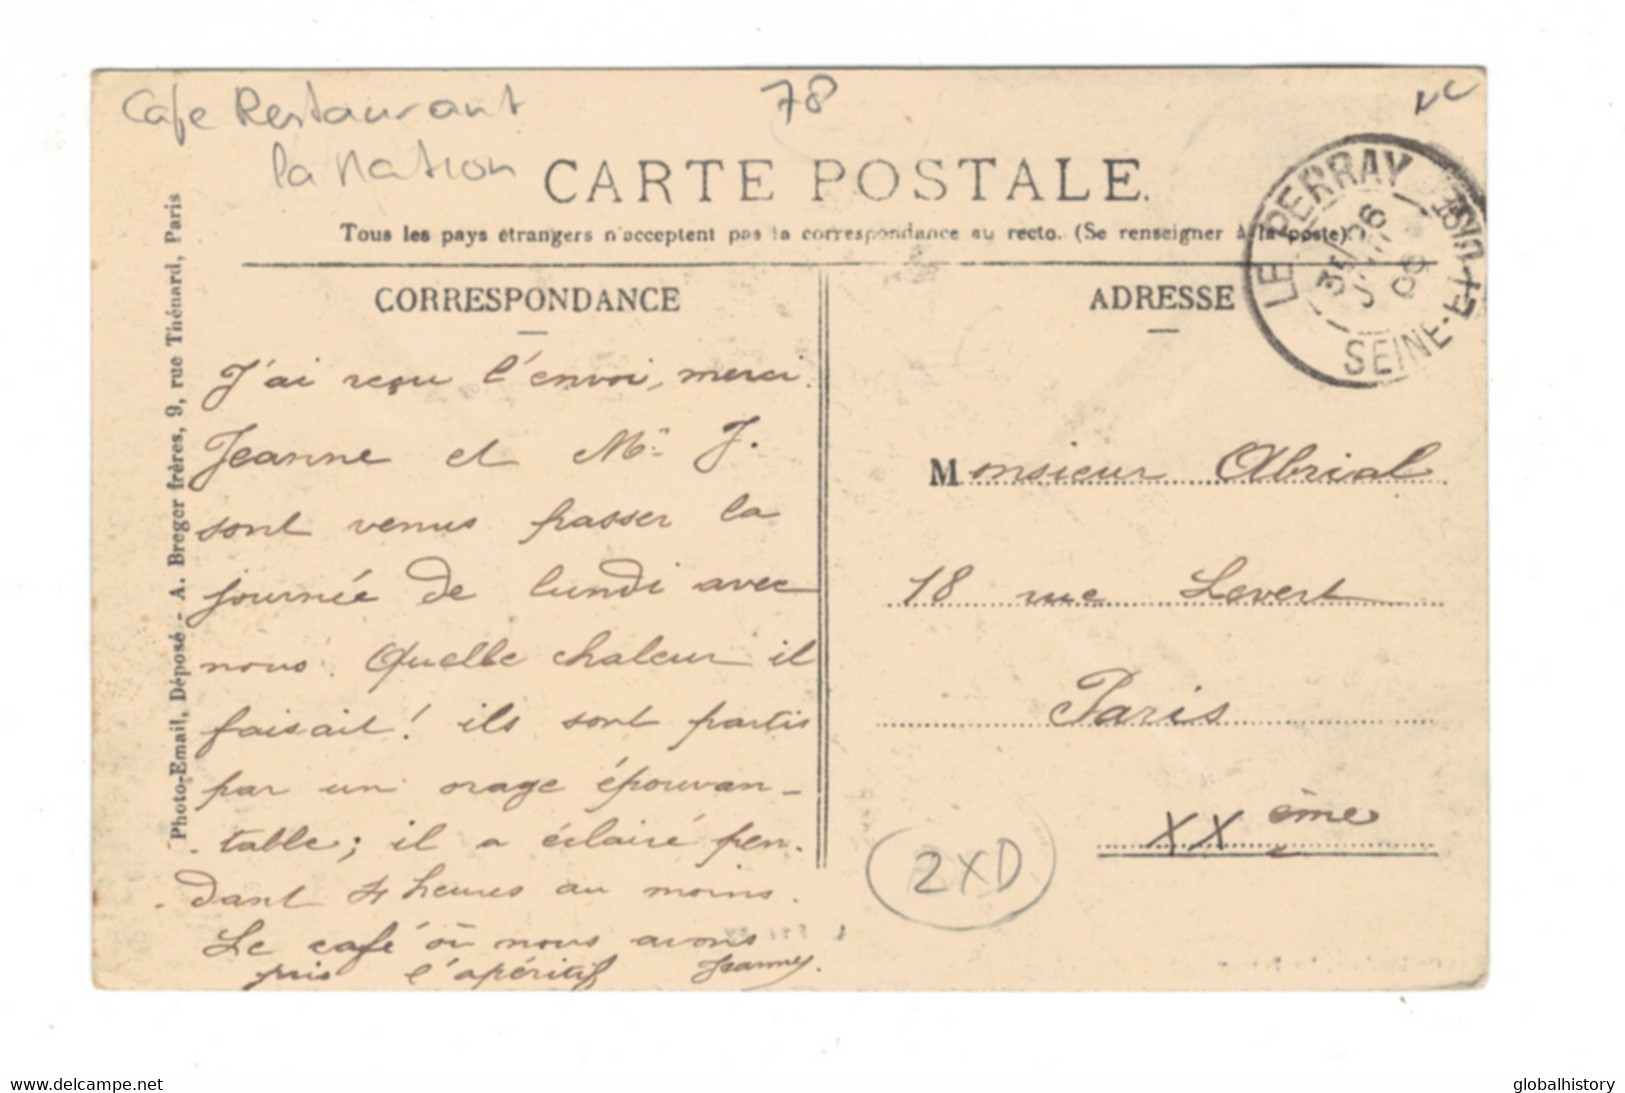 Cafe Restaurant
la Nation
78
CARTE POSTALE.
Tous les pays étrangers n'acceptent pas la correspondance au recto. (Se renseigner à la poste).
LE PERRAY
SEINE-ET-OISE
CORRESPONDANCE
ADRESSE
J'ai reçu l'envoi, merci.
Jeanne et Mr J.
sont venus passer la
journée de lundi avec
nous. Quelle chaleur il
faisait! ils sont partis
par un orage épouvan-
table; il a éclairé pen-
dant 4 heures au moins.
Le café où nous avons
pris l'apéritif
Monsieur Abrial
18 rue Levert
Paris
XXème
2XD
Photo-Email, Déposé - A. Breger frères, 9, rue Thénard, Paris
www.delcampe.net
globalhistory